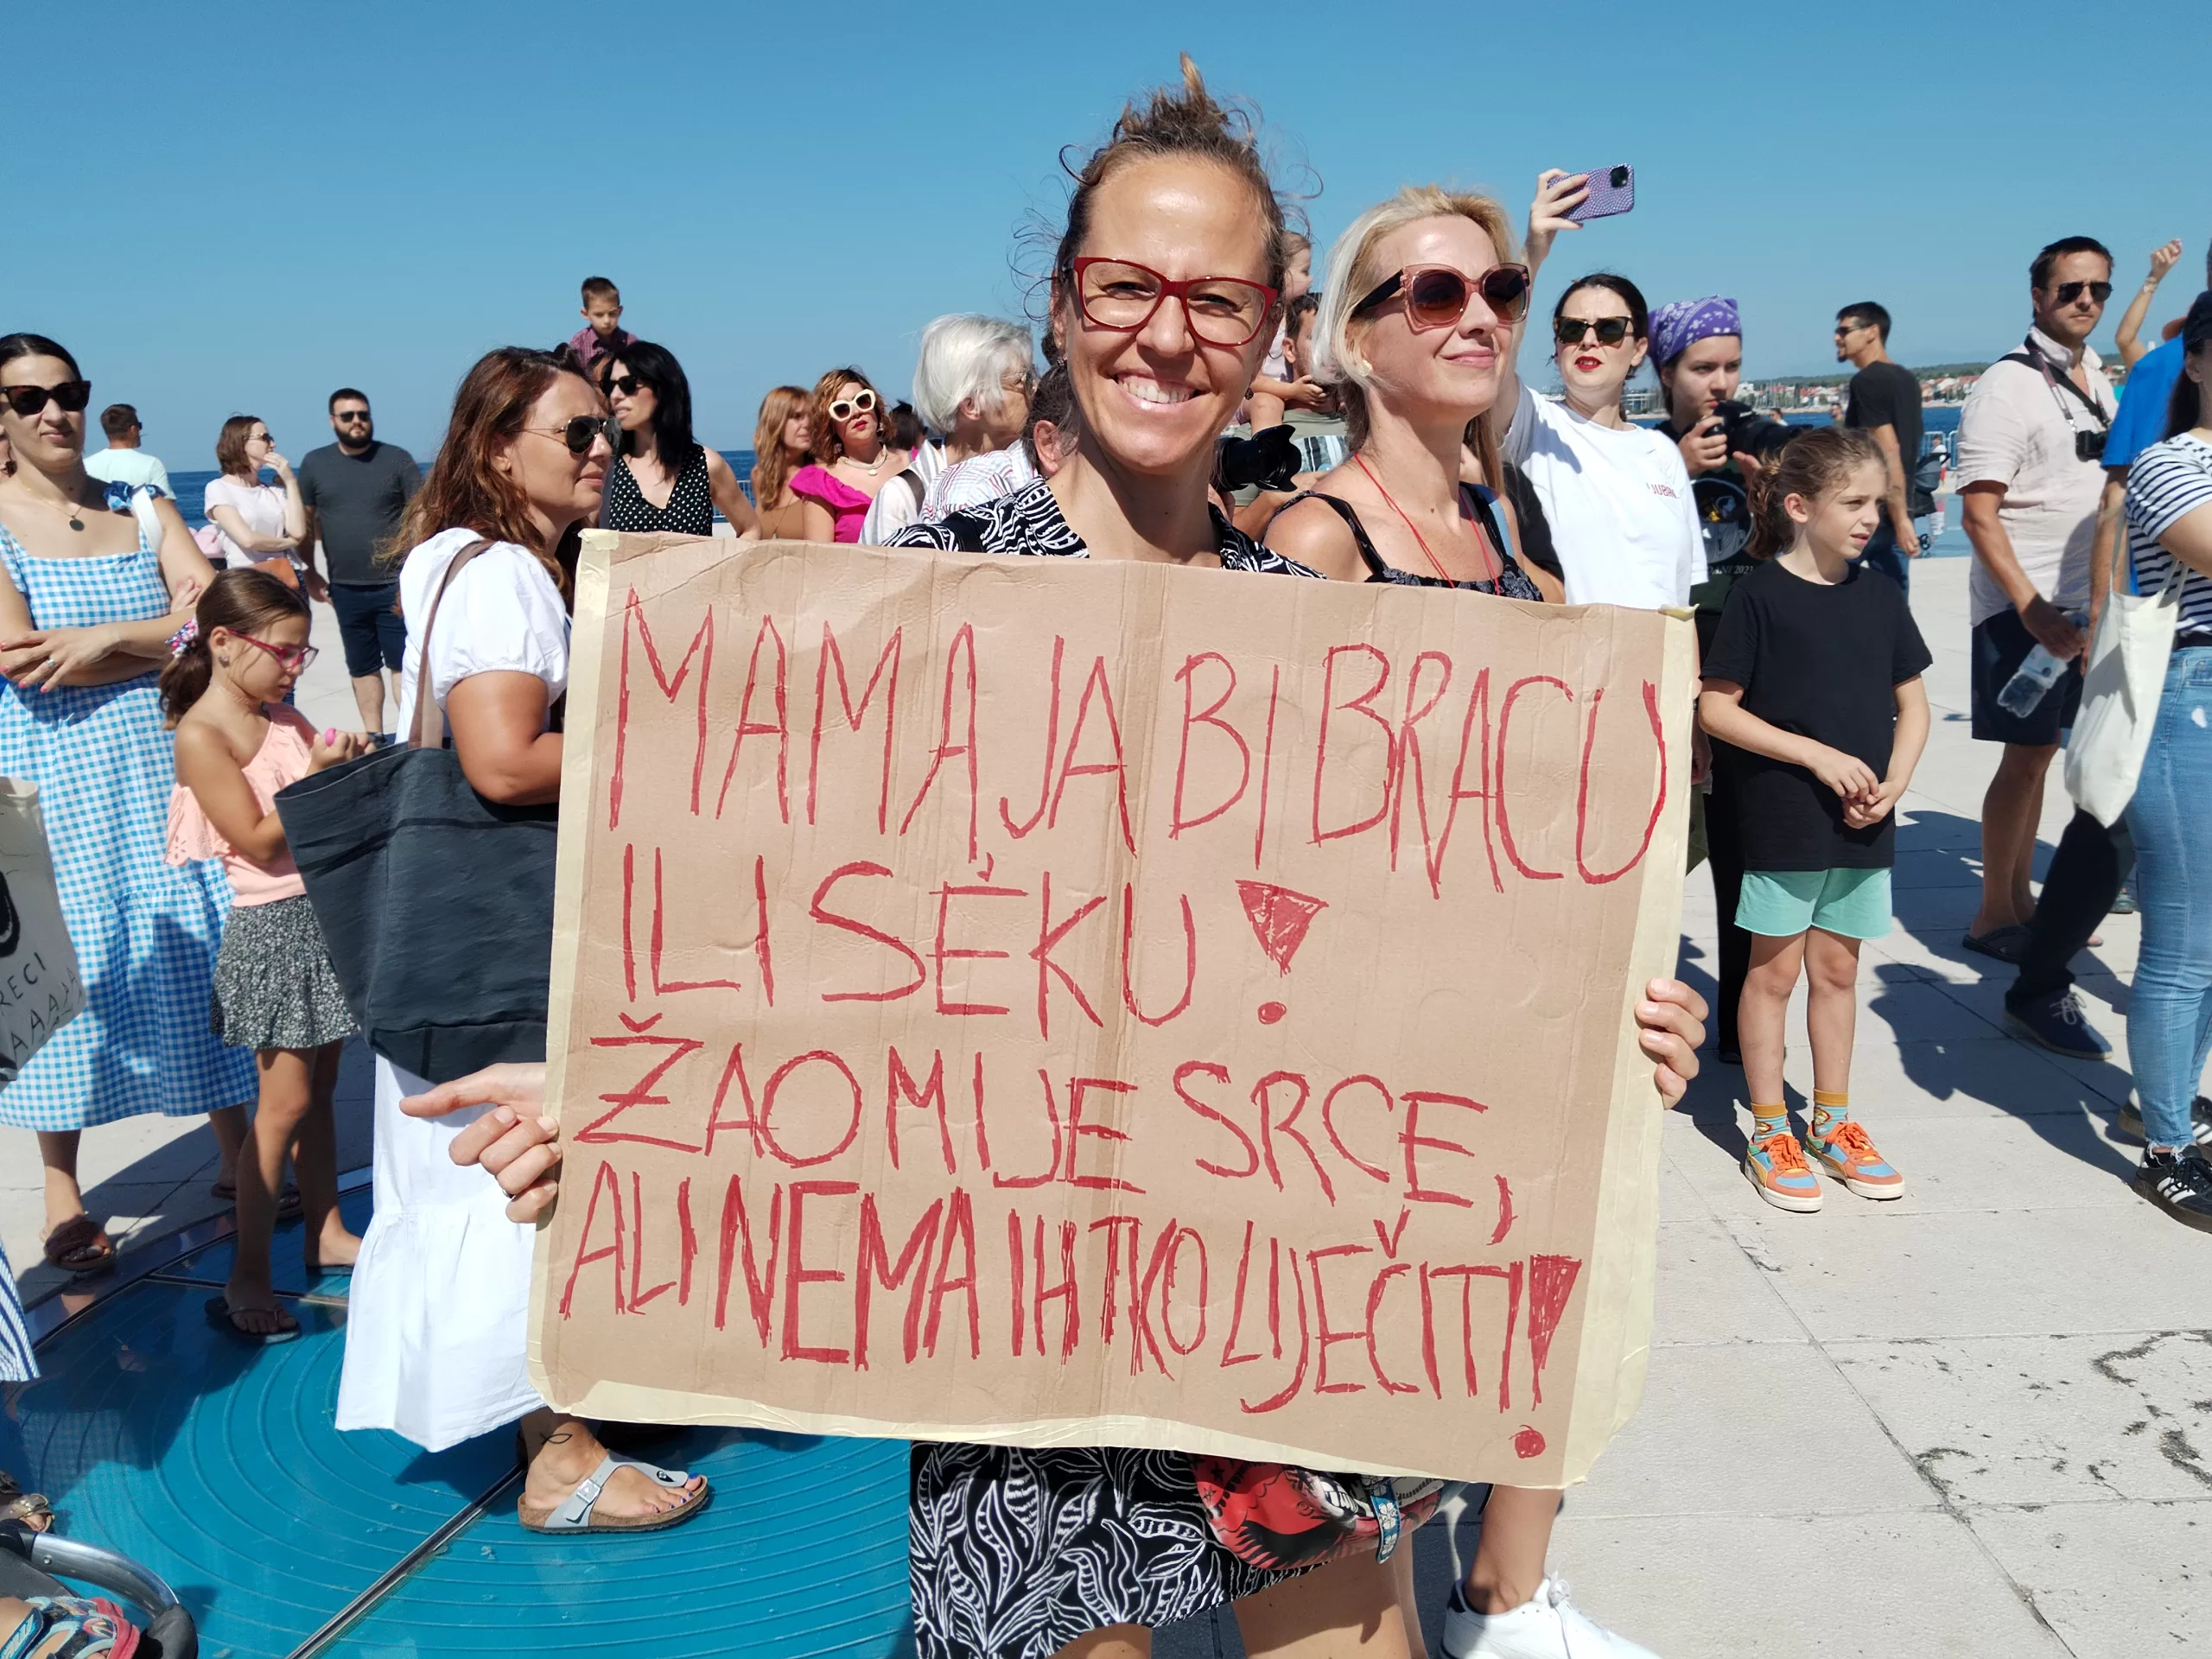 MAMA JA BI BRACU
ILI SEKU!
ŽAO MI JE SRCE,
ALI NEMA IH TKO LIJEČITI!
RECI
AAAAA